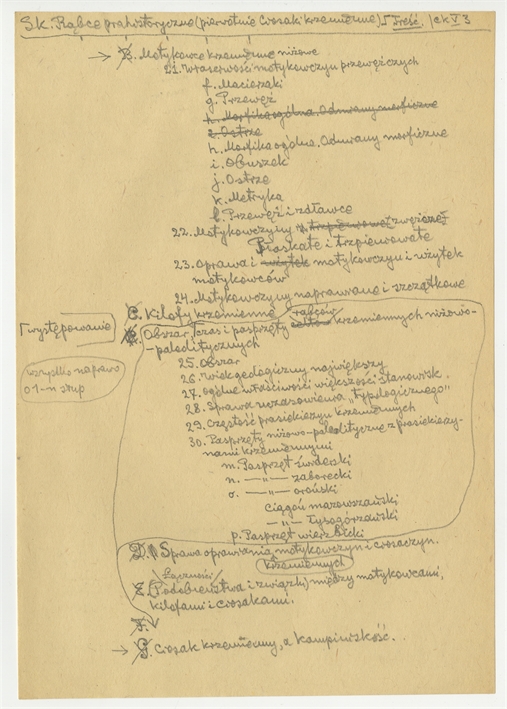 Sk. Rąbce prahistoryczne (pierwotnie Ciosaki krzemienne) I Treść, 3
→ B. Motykowce krzemienne niżowe
21. Właściwości motykowczyn przewężczych
f. Macierzaki
g. Przewęz
h. Morfika ogólna. Odmiany morficzne
i. Ostrze
h. Morfika ogólna. Odmiany morficzne
i. Obuszek
j. Ostrze
k. Metryka
l. Przewęź i zdławce
22. Motykowczyny
Płaskate i trzpieniowate
23. Oprawa i użytek motykowczyn i użytek
motykowców
24. Motykowczyny naprawiane i szczątkowe
C. Kilofy krzemienne
rąbców
występowanie
Obszar, czas i pasprzęty krzemiennych niżowo-
-paleolitycznych
wszystko naprawo
o 1-n skup
25. Obszar
26. Wiek geologiczny największy
27. Ogólne właściwości większości stanowisk.
28. Sprawa uczasowienia „typologicznego"
29. Częstość prasiekiezyn krzemiennych
30. Pasprzęty niżowo-paleolityczne z prasiekiezy-
nami krzemiennymi
m. Pasprzęt świderski
n. — „ — zaborecki
o. — „ — oroński
Ciągoń mazowszański
— „ — łysogórzański
p. Pasprzęt wierzbicki
D. Sprawa oprawiania motykowczyn i ciosaczyn.
krzemiennych
Łączności
E. (Podobieństwa i związki) między motykowcami,
kilofami i ciosakami.
F.
→ G. Ciosak krzemienny, a kampiniskość.